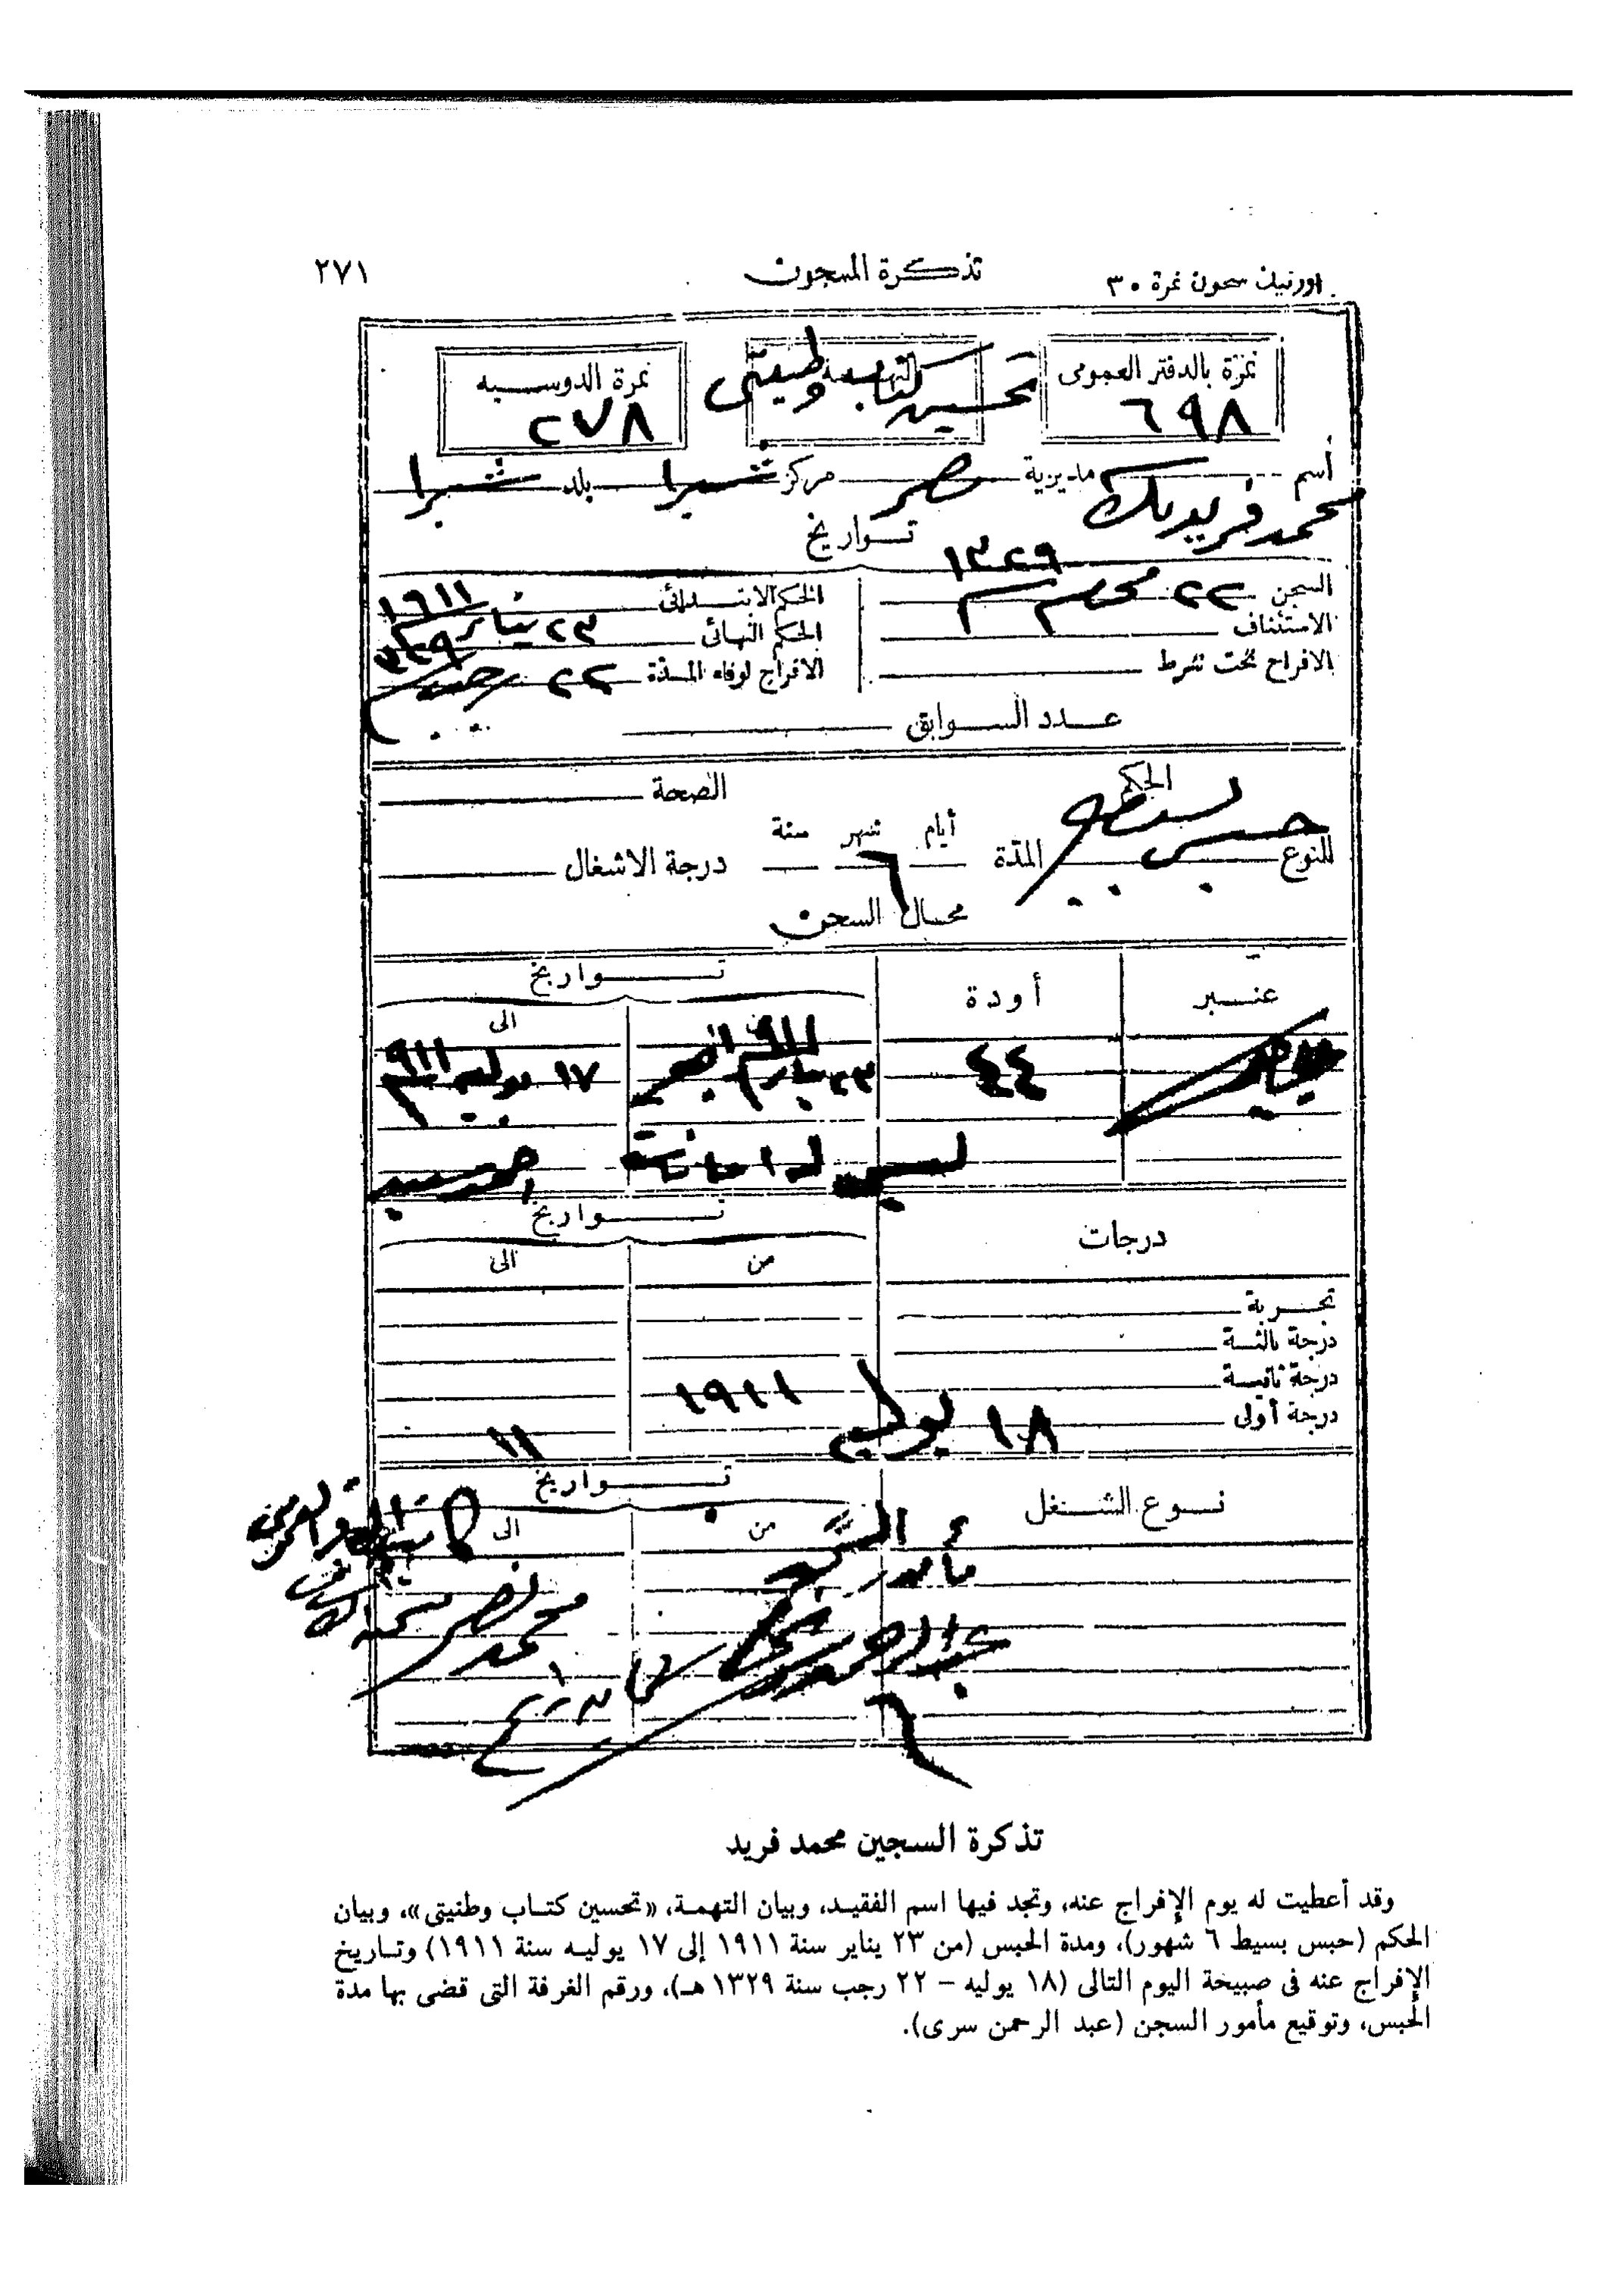 اورنيك سجون نمرة ٣٠ تذكرة المسجون ٢٧١
نمرة بالدفتر العمومى التهمة نمرة الدوسيه
٦٩٨ تحسين كتاب وطنيتى ٢٧٨
اسم محمد فريد بك مديرية مصر مركز شبرا بلد شبرا
تواريخ
السجن ٢٢ محرم ١٣٢٩ الحكم الابتدائى ٢٣ يناير ١٩١١
الاستئناف الحكم النهائى
الافراج تحت شرط الافراج لوفاء المدة ٢٢ رجب ٣٢٩
عدد السوابق
الحكم الصحة
أيام شهر سنة
النوع حبس بسيط المدة ٦ درجة الاشغال
محال السجن
عنبر أودة تواريخ
الى
٤٤ ٢٣ يناير ٩١١ ١٧ يوليه ٩١١
ليس له امانات
درجات تواريخ
من الى
تجربة
درجة ثالثة
درجة ثانية
درجة أولى
١٨ يوليه ١٩١١
١١
نوع الشغل تواريخ
من الى
مأمور السجن
عبد الرحمن
محمد نصر
تذكرة السجين محمد فريد
وقد أعطيت له يوم الإفراج عنه، وتجد فيها اسم الفقيد، وبيان التهمة، «تحسين كتاب وطنيتى»، وبيان
الحكم (حبس بسيط ٦ شهور)، ومدة الحبس (من ٢٣ يناير سنة ١٩١١ إلى ١٧ يوليه سنة ١٩١١) وتاريخ
الإفراج عنه فى صبيحة اليوم التالى (١٨ يوليه - ٢٢ رجب سنة ١٣٢٩ هـ)، ورقم الغرفة التى قضى بها مدة
الحبس، وتوقيع مأمور السجن (عبد الرحمن سرى).